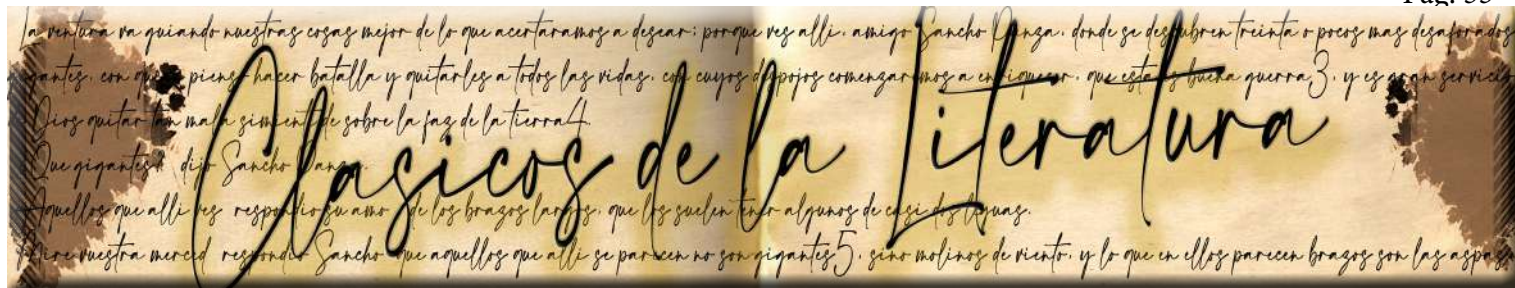 Pag. 55
la ventura va guiando nuestras cosas mejor de lo que acertaramos a desear; porque ves alli, amigo Sancho Panza, donde se descubren treinta o pocos mas desaforados
gigantes, con quien pienso hacer batalla y quitarles a todos las vidas, con cuyos despojos comenzaremos a enriquecer, que esta es buena guerra3, y es gran servicio
Dios quitar tan mala simiente de sobre la faz de la tierra4.
Que gigantes? dijo Sancho Panza.
Aquellos que alli ves respondio su amo de los brazos largos, que los suelen tener algunos de casi dos leguas.
Mire vuestra merced respondio Sancho que aquellos que alli se parecen no son gigantes5, sino molinos de viento, y lo que en ellos parecen brazos son las aspas
Clasicos de la Literatura